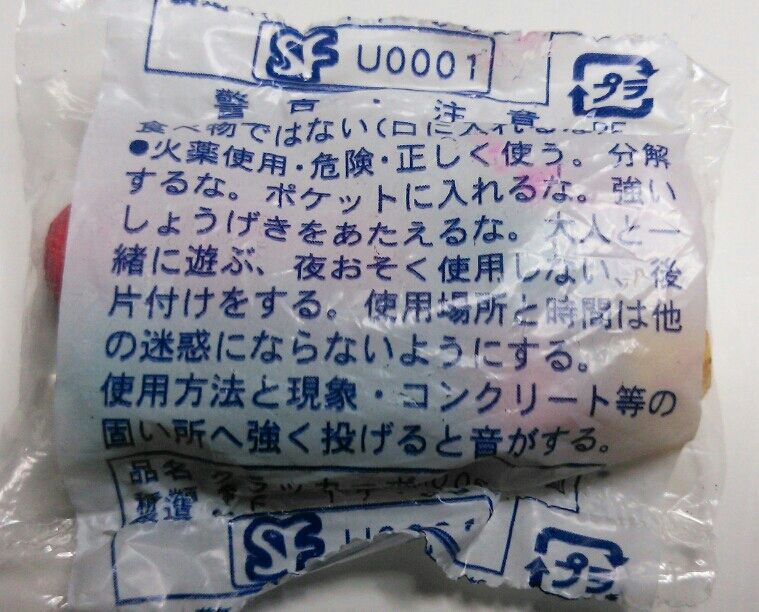 SF U0001 プラ
警告・注意
食べ物ではない(口に入れ
●火薬使用・危険・正しく使う。分解
するな。ポケットに入れるな。強い
しょうげきをあたえるな。大人と一
緒に遊ぶ、夜おそく使用しない、後
片付けをする。使用場所と時間は他
の迷惑にならないようにする。
使用方法と現象・コンクリート等の
固い所へ強く投げると音がする。
品名
SF プラ